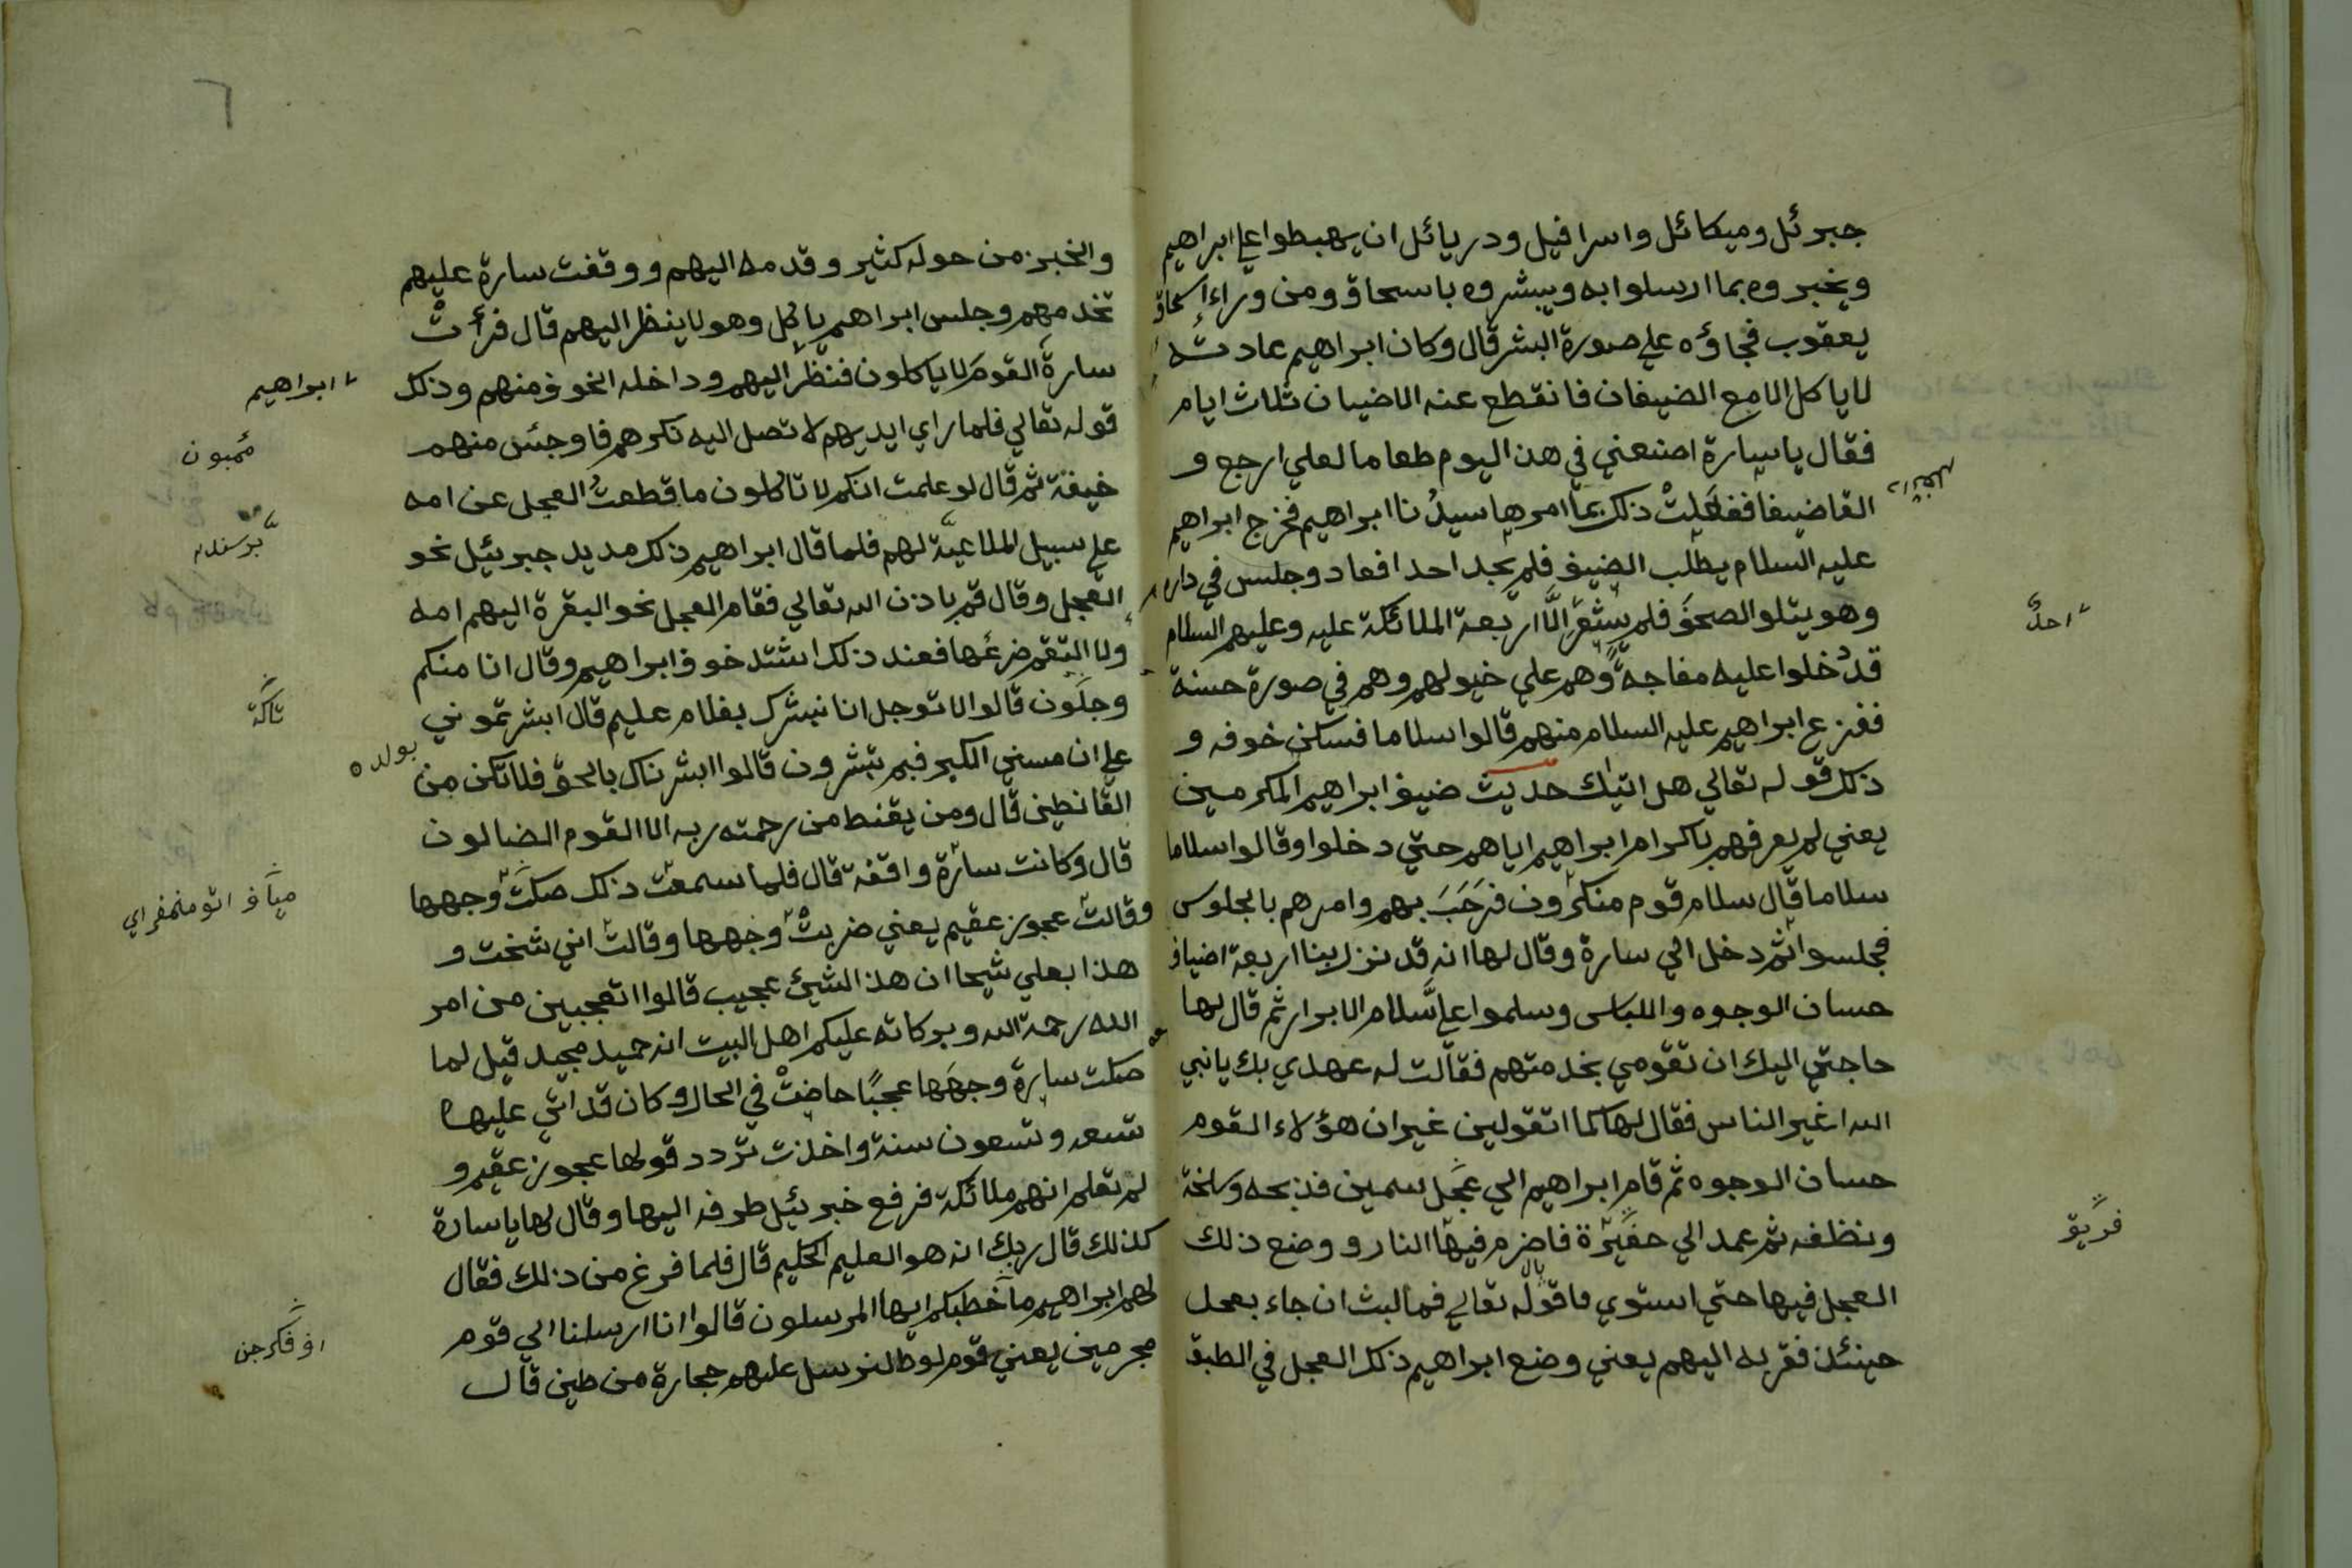 جبرئل وميكائل واسرافيل ودريائل ان يهبطوا علي ابراهيم
ويخبروه بما ارسلوا به ويبشروه باسحاق ومن وراء اسحاق
يعقوب فجاؤه علي صورة البشر قال وكان ابراهيم عادته
لا ياكل الا مع الضيفان فانقطع عنه الاضيان ثلاث ايام
فقال يا سارة اصنعني في هذ اليوم طعاما لعلي ارجع و
القا ضيفا ففعلت ذلك بما امرها سيدنا ابراهيم فخرج ابراهيم
عليه السلام يطلب الضيف فلم يجد احدا فعاد وجلس في داره
وهو يتلو الصحف فلم يشعر الا اربعة الملائكة عليه وعليهم السلام
قد دخلوا عليه مفاجة وهم علي خيولهم وهم في صورة حسنة
ففزع ابراهيم عليه السلام منهم قالوا سلاما فسكن خوفه و
ذلك قوله تعالي هل اتيك حديث ضيف ابراهيم المكرمين
يعني لم يعرفهم باكرام ابراهيم اياهم حتي دخلوا وقالوا سلاما
سلاما قال سلام قوم منكرون فرحب بهم وامرهم بالجلوس
فجلسوا ثم دخل الي سارة وقال لها انه قد نزل بنا اربعة اضياف
حسان الوجوه واللباس وسلموا علي سلام الابرار ثم قال لها
حاجتي اليك ان تقومي بخدمتهم فقالت له عهدي بك يا نبي
الله اغير الناس فقال لها كما اتقولين غير ان هؤلاء القوم
حسان الوجوه ثم قام ابراهيم الي عجل سمين فذبحه وسلخة
ونظفه ثم عمد الي حفيرة فاضرم فيها النار و وضع ذلك
العجل فيها حتي استوي ما قوله تعالي فما لبث ان جاء بعجل
حينئذ فقربه اليهم يعني وضع ابراهيم ذلك العجل في الطبق
احد
فريق
٦
والخبز من حوله كثير وقدمه اليهم ووقفت سارة عليهم
تخدمهم وجلس ابراهيم ياكل وهو لا ينظر اليهم قال فرأت
سارة القوم لا ياكلون فنظر اليهم وداخله الخوف منهم وذلك
قوله تعالي فلما راي ايديهم لا تصل اليه نكرهم فاوجئس منهم
خيفة ثم قال لو علمت انكم لا تاكلون ما قطعت العجل عن امه
علي سبيل الملاعبة لهم فلما قال ابراهيم ذلك مد يد جبريئل نحو
العجل وقال قم باذن الله تعالي فقام العجل نحو البقرة اليهم امه
ولا التقم ضرعها فعند ذلك اشتد خوف ابراهيم وقال انا منكم
وجلون قالوا لا توجل انا نبشرك بغلام عليم قال ابشرتموني
علي ان مسني الكبر فبم تبشرون قالوا ابشرناك بالحق فلا تكن من
القانطين قال ومن يقنط من رحمته ربه الا القوم الضالون
قال وكانت سارة واقفة قال فلما سمعت ذلك صكت وجهها
وقالت عجوز عقيم يعني ضربت وجهها وقالت اني شخت و
هذا بعلي شيخا ان هذ الشيئ عجيب قالوا اتعجبين من امر
الله رحمة الله وبركاته عليكم اهل البيت انه حميد مجيد قيل لما
صكت سارة وجهها عجبًا حاضت في الحال وكان قد اتي عليها
تسعه وتسعون سنة واخذت تردد قولها عجوز عقيم و
لم تعلم انهم ملائكة فرفع خبريئل طرفه اليها وقال لها يا سارة
كذلك قال ربك انه هو العليم الحكيم قال فلما فرغ من ذلك فقال
لهم ابراهيم ما خطبكم ايها المرسلون قالوا انا ارسلنا الي قوم
مجرمين يعني قوم لوط لنرسل عليهم حجارة من طين قال
ابراهيم
بولده